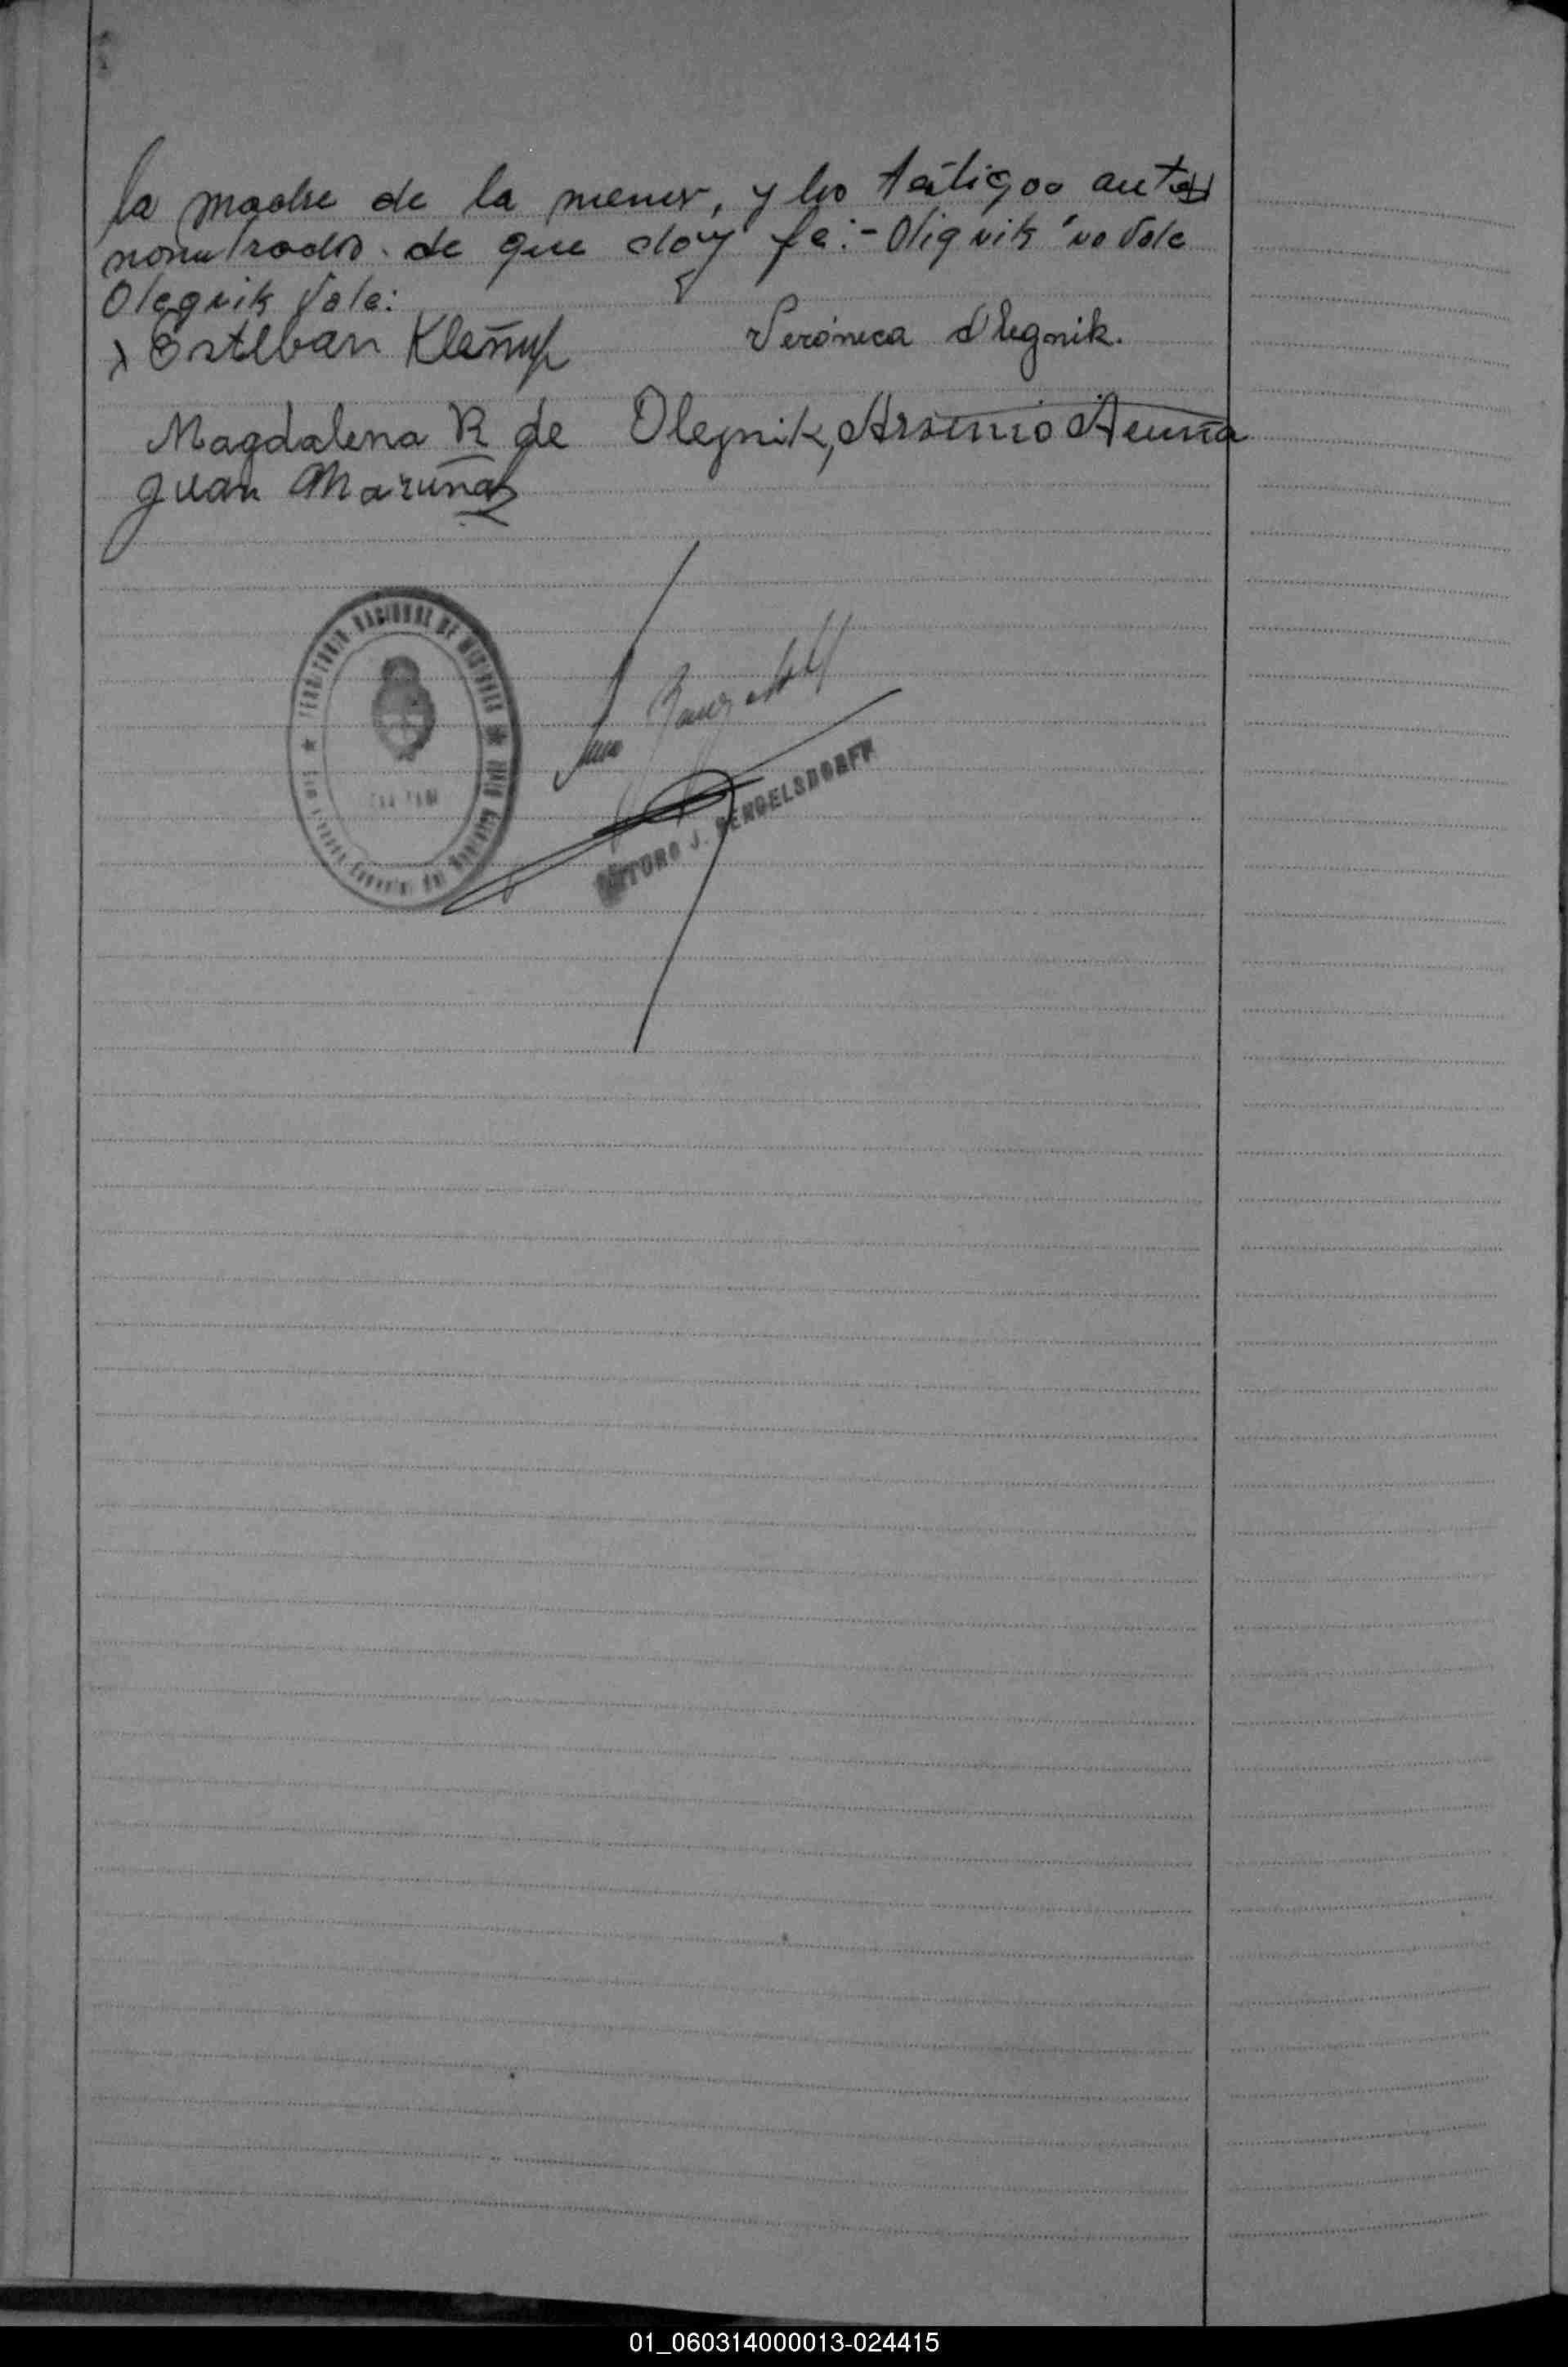 la madre de la menor, y los testigos antes
nombrados. de que doy fe:- Olignik "no Vale
Olegnik Vale:
Esteban
Verónica Olegnik.
Magdalena R de Olejnik, Arsenio Acuña
Juan Maruñas
TERRITORIO NACIONAL DE MISIONES
ARTURO J. BENGELSDORFF
01_060314000013-024415